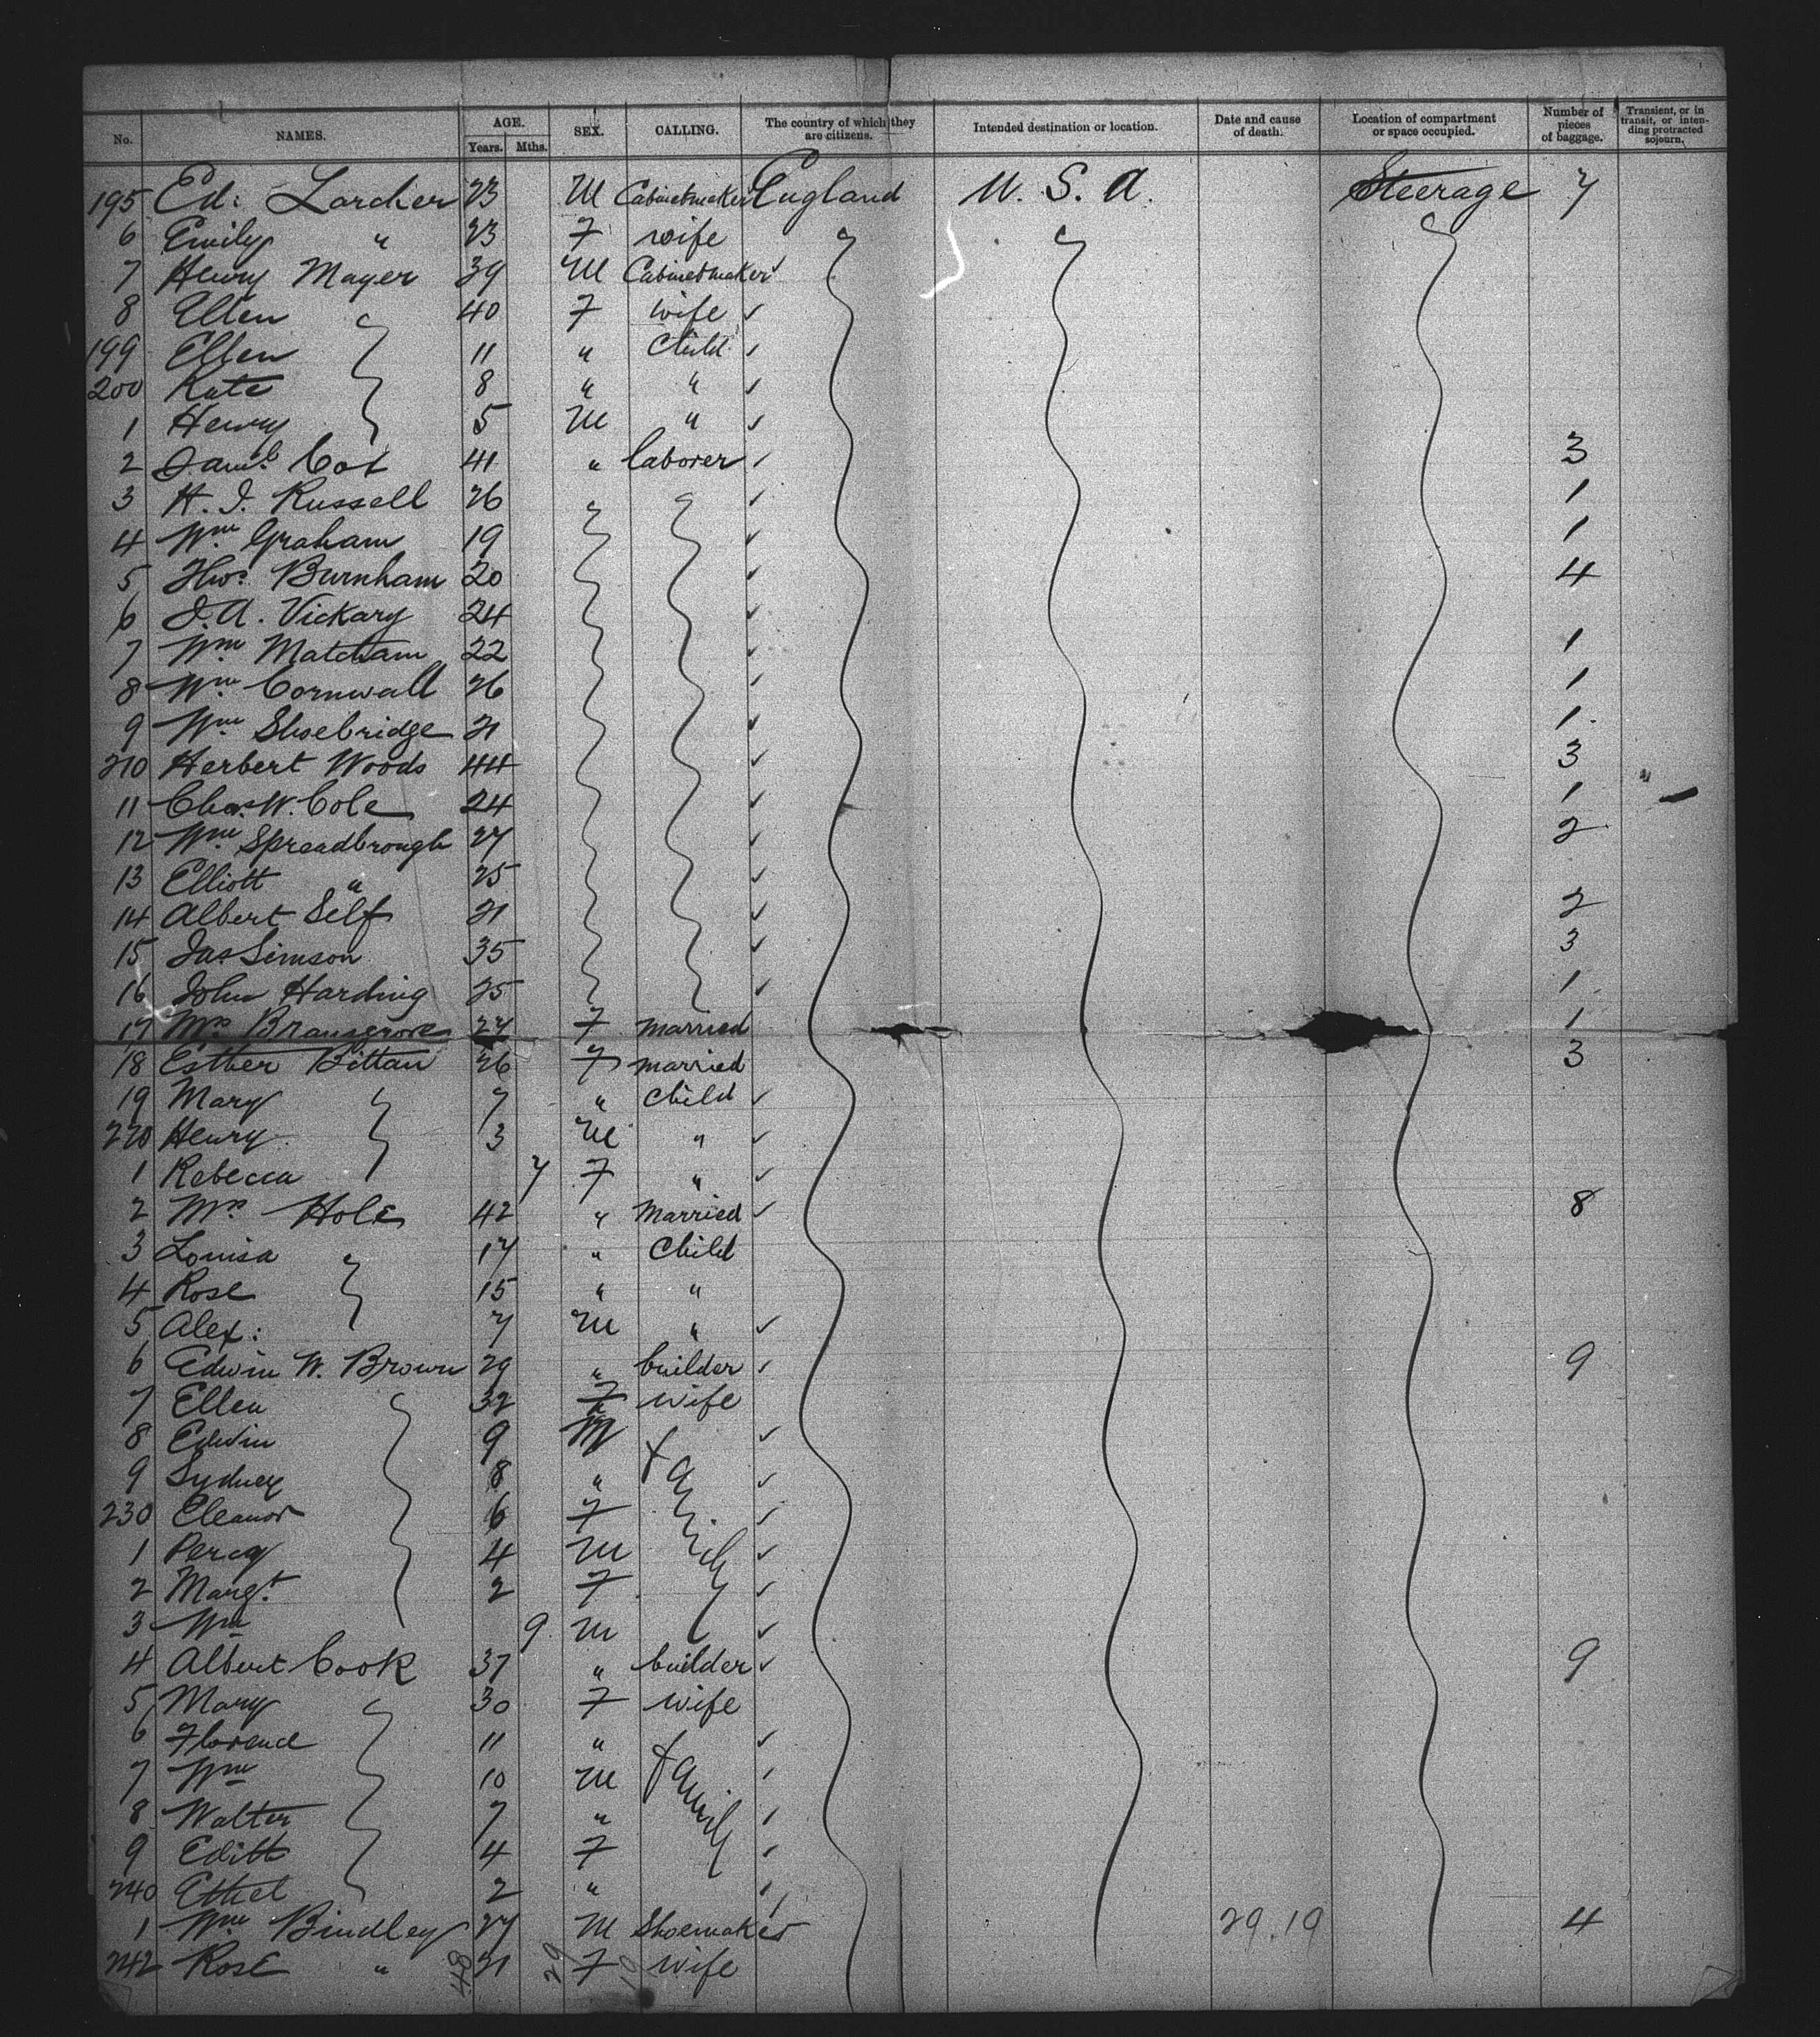 No. NAMES. AGE. Years. Mths. SEX. CALLING. The country of which they are citizens. Intended destination or location. Date and cause of death. Location of compartment or space occupied. Number of pieces of baggage. Transient, or in transit, or intending protracted sojourn.
195 Ed: Larcher 23 M Cabinetmaker England U. S. A. Steerage 7
6 Emily " 23 F wife
7 Henry Mayer 39 M Cabinetmaker
8 Ellen 40 F wife
199 Ellen 11 " Child
200 Kate 8 " "
1 Henry 5 M "
2 Saml. Cox 41 " laborer 3
3 H. J. Russell 26 1
4 Wm Graham 19 1
5 Thos. Burnham 20 4
6 J. A. Vickary 24
7 Wm Matcham 22 1
8 Wm Cornwall 26 1
9 Wm Shoebridge 21 1
210 Herbert Woods 44 3
11 Chas. W. Cole 24 1
12 Wm Spreadbrough 27 2
13 Elliott " 25
14 Albert Self 21 2
15 Jas Simson 35 3
16 John Harding 25 1
17 Mrs Bransgrove 27 F married 1
18 Esther Bittan 26 F married 3
19 Mary 7 " Child
220 Henry 3 M "
1 Rebecca 7 F "
2 Mrs Hole 42 " Married 8
3 Louisa 17 " Child
4 Rose 15 " "
5 Alex: 7 M "
6 Edwin W. Brown 29 " builder 9
7 Ellen 32 F wife
8 Edwin 9 M family
9 Sydney 8 "
230 Eleanor 6 F
1 Percy 4 M
2 Margt. 2 F
3 Wm 9 M
4 Albert Cook 37 " builder 9
5 Mary 30 F wife
6 Florence 11 "
7 Wm 10 M family
8 Walter 7 "
9 Edith 4 F
240 Ethel 2 "
1 Wm Bindley 27 M Shoemaker 29.19 4
242 Rose " 21 F wife
48 29 19